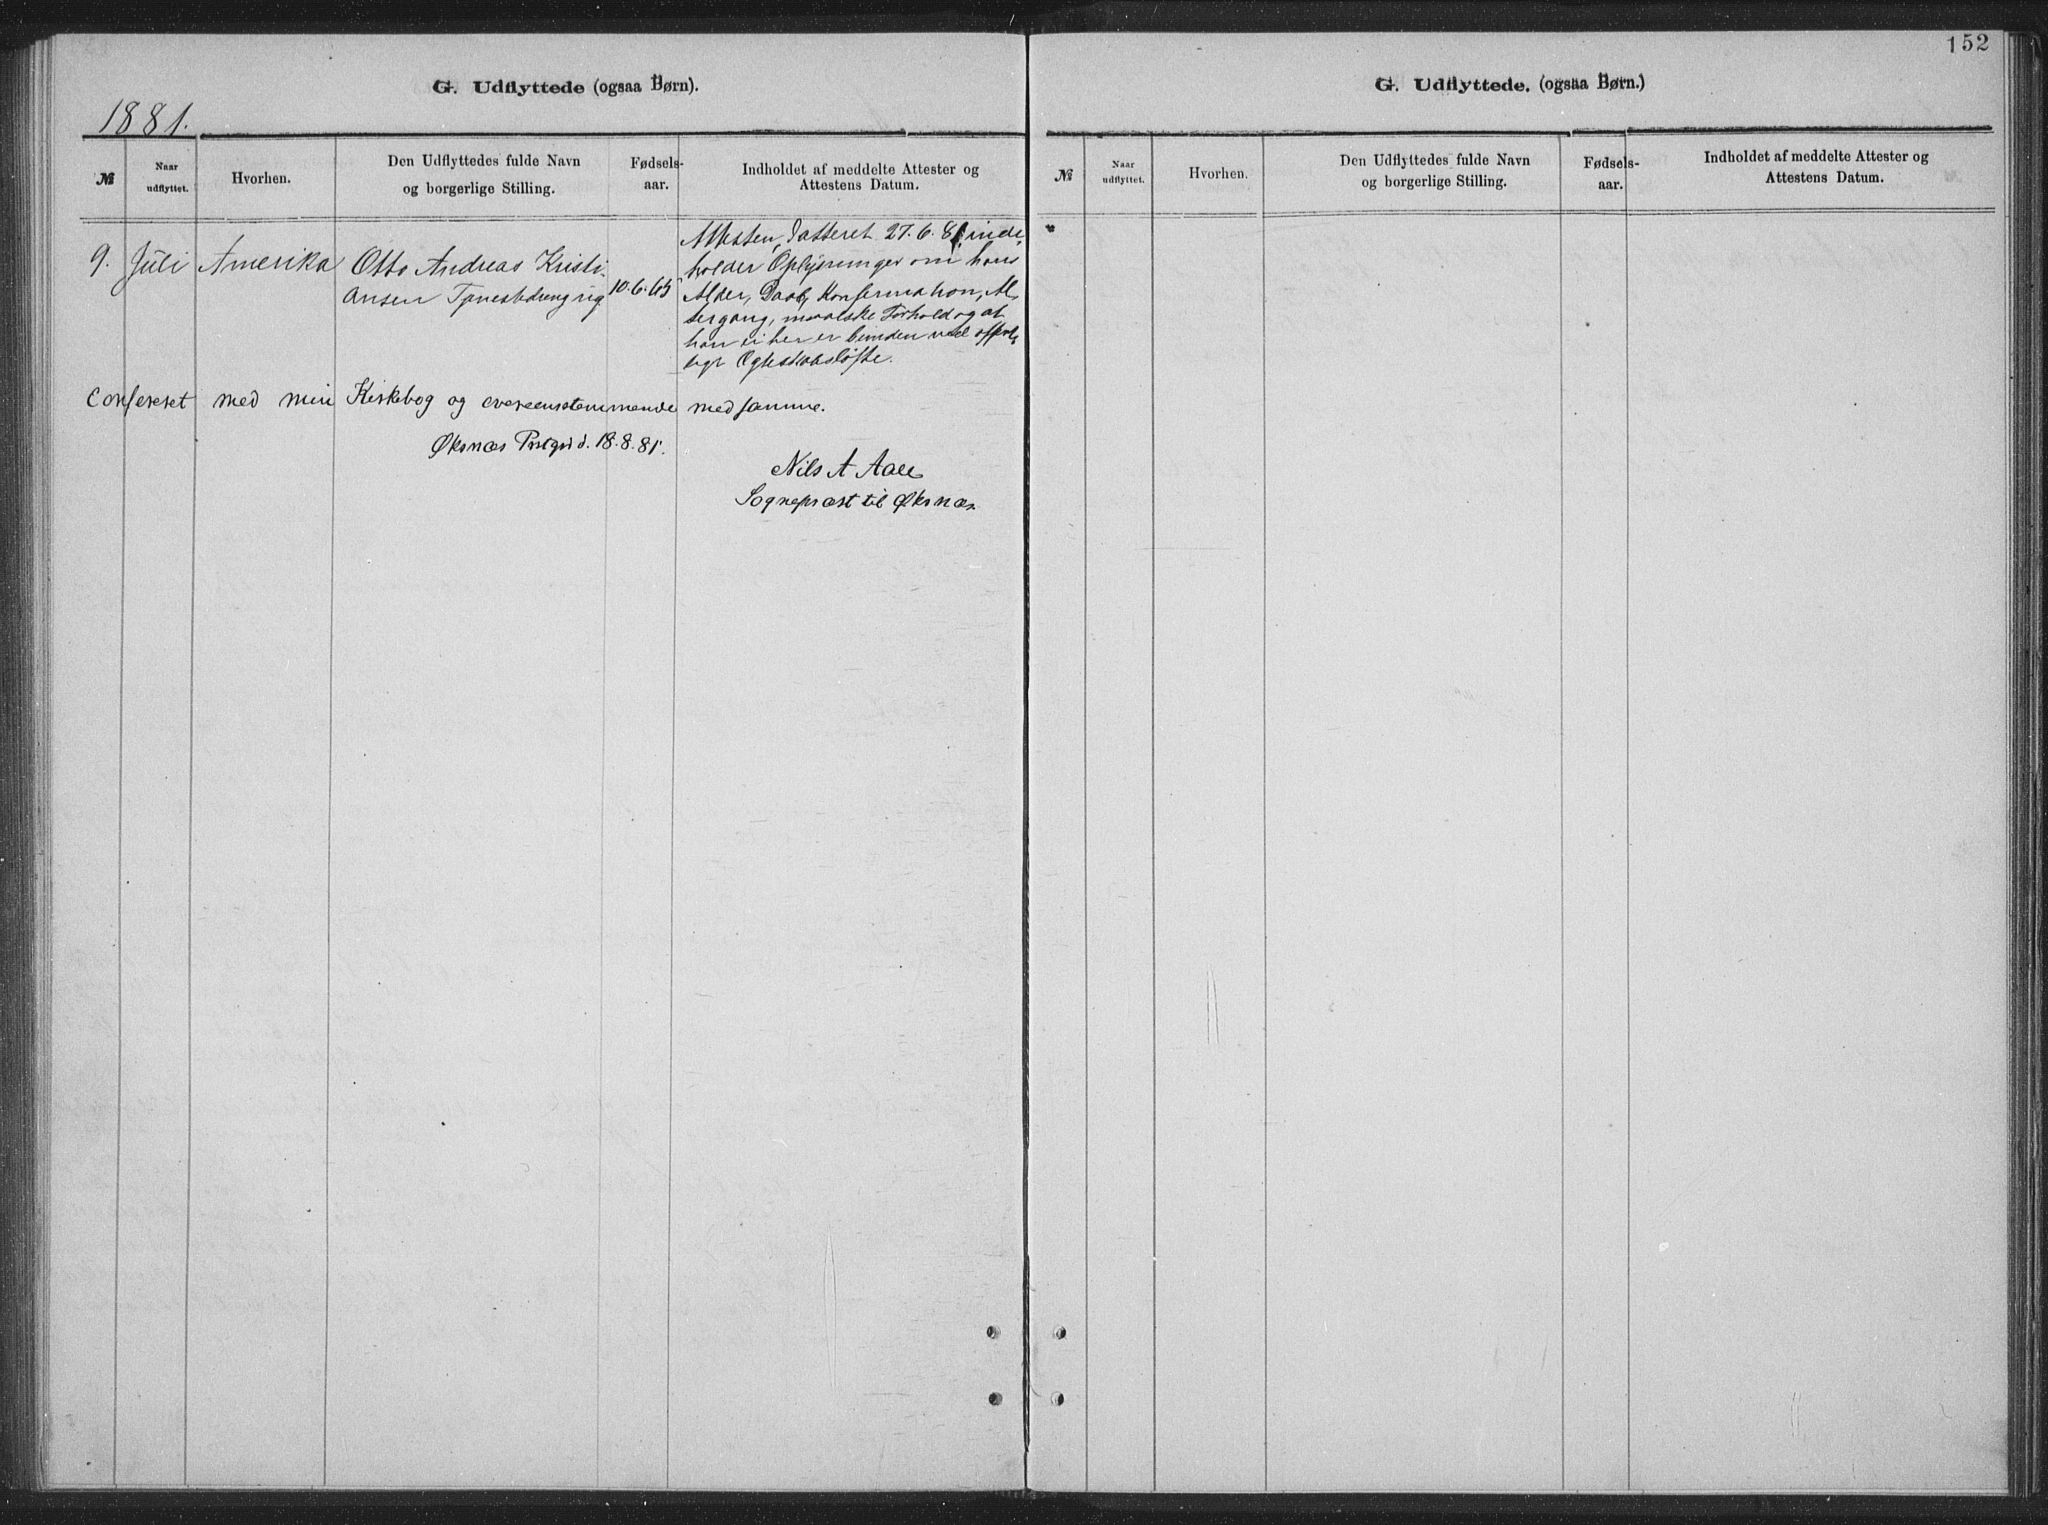 G. Udflyttede (ogsaa Børn).
1881.
№
Naar udflyttet.
Hvorhen.
Den Udflyttedes fulde Navn
og borgerlige Stilling.
Fødsels-
aar.
Indholdet af meddelte Attester og
Attestens Datum.
9. Juli Amerika
Otto Andreas Kristi-
ansen Tjenestedreng
10.6.65
Attesten, datteret 27.6.81 inde-
holder Oplysninger om hans
Alder, Daab, Konfirmation, Al-
tergang, moralske Forhold og at
han ei her er bunden ved offent-
ligt Egteskabsløfte.
Confereret med min Kirkebog og overeensstemmende med samme.
Øksnæs Prstgrd. 18.8.81.
Nils A Aall
Sognepræst til Øksnæs
152
G. Udflyttede. (ogsaa Børn.)
№
Naar
udflyttet.
Hvorhen.
Den Udflyttedes fulde Navn
og borgerlige Stilling.
Fødsels-
aar.
Indholdet af meddelte Attester og
Attestens Datum.